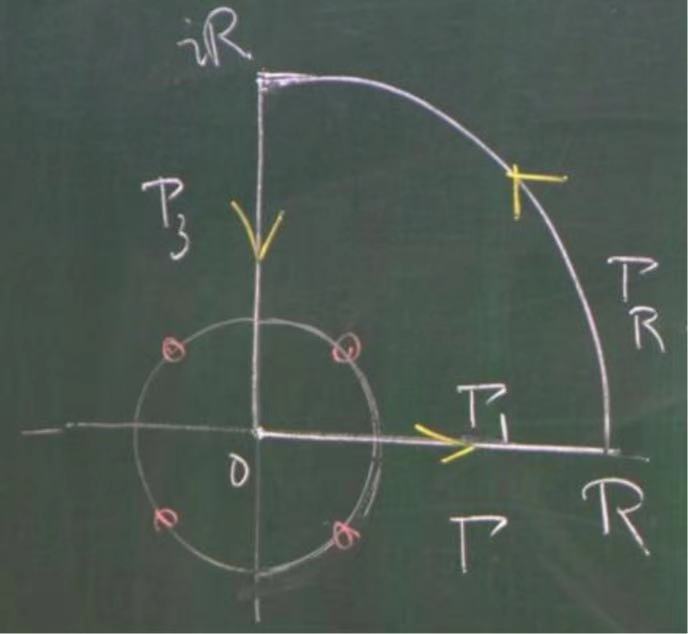 iR
Γ3
ΓR
Γ1
0
R
Γ